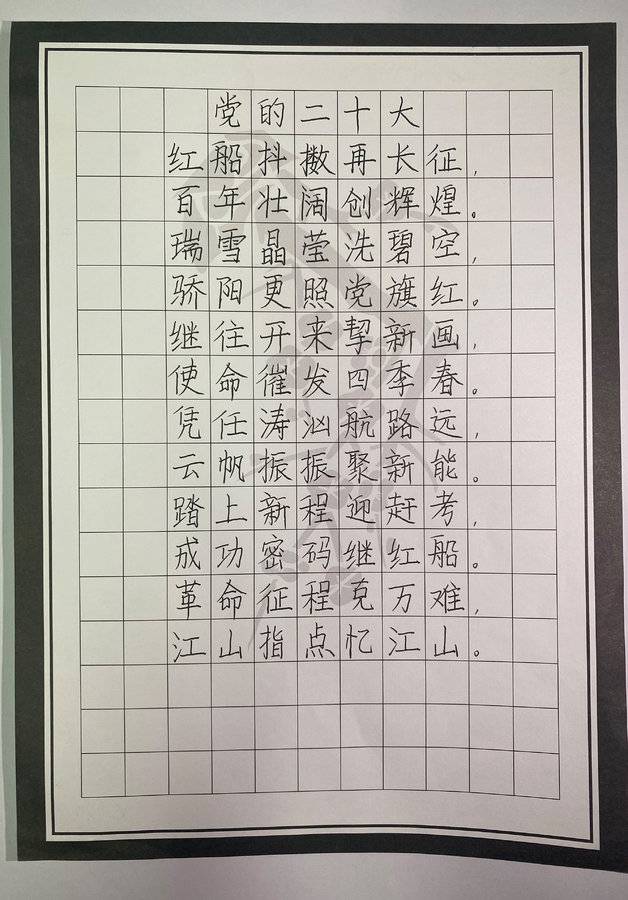 党的二十大
红船抖擞再长征,
百年壮阔创辉煌。
瑞雪晶莹洗碧空,
骄阳更照党旗红。
继往开来挈新画,
使命催发四季春。
凭任涛汹航路远,
云帆振振聚新能。
踏上新程迎赶考,
成功密码继红船。
革命征程克万难,
江山指点忆江山。